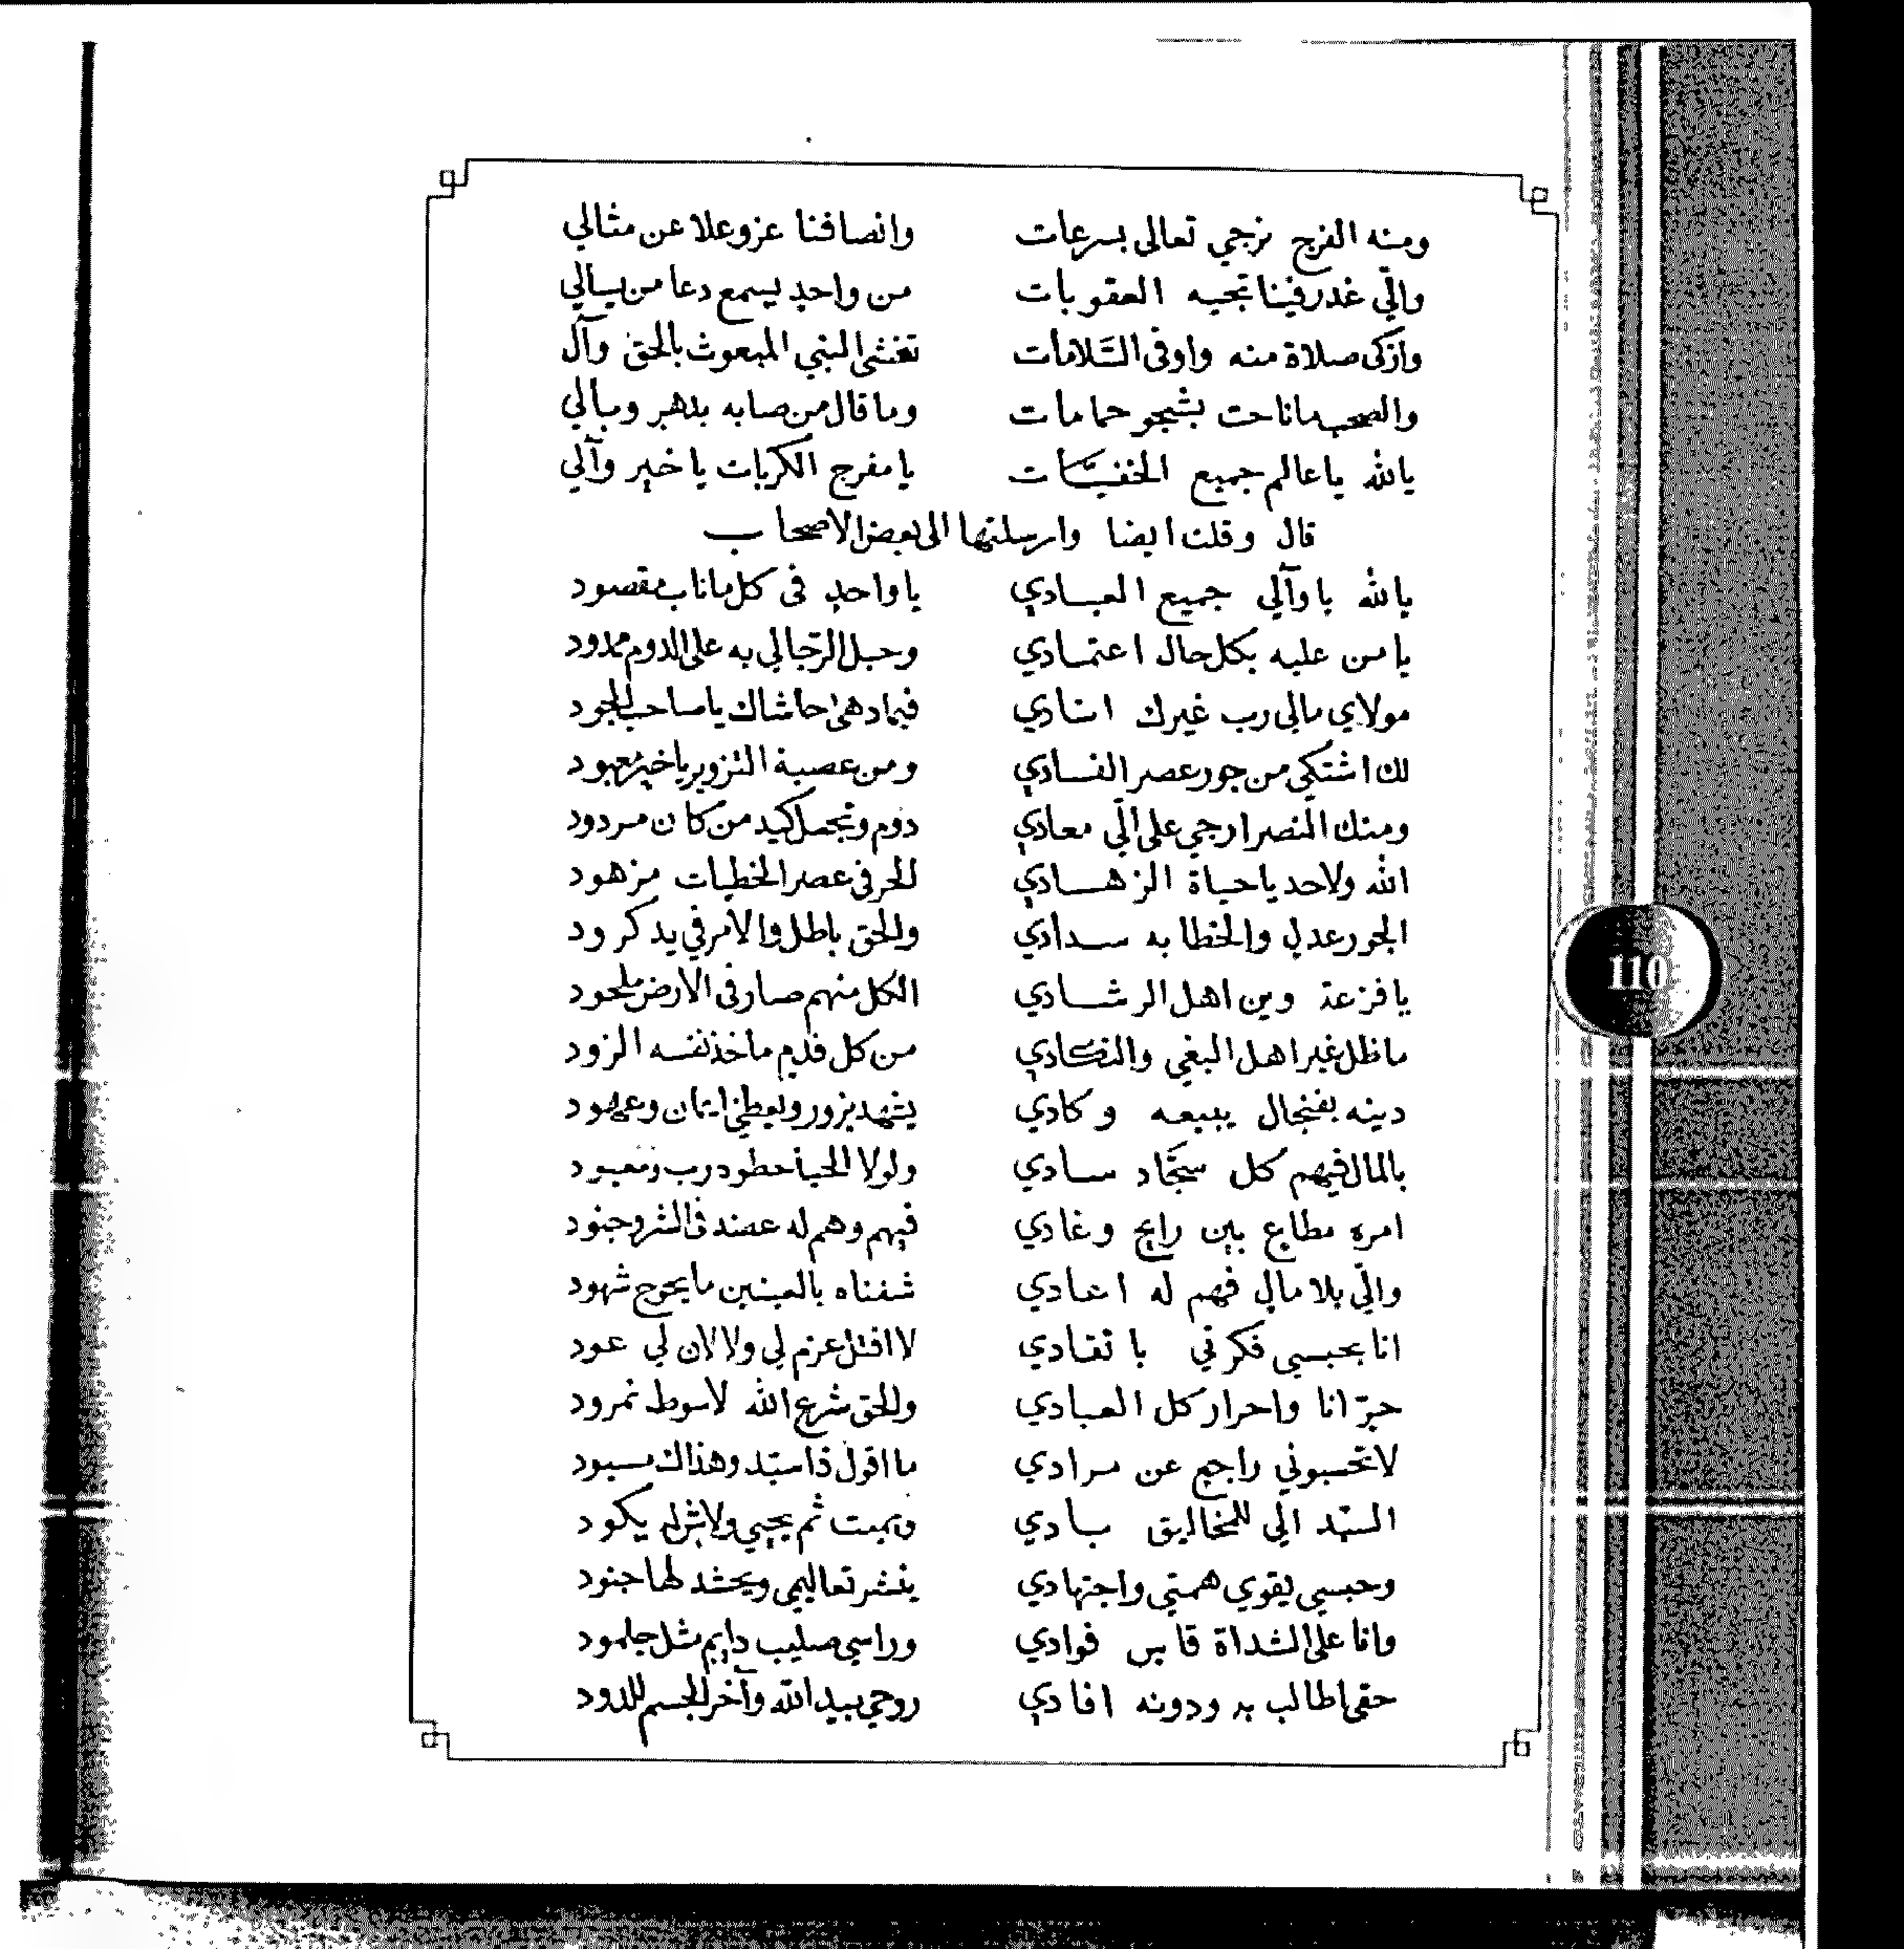 ومنه الفرج نرجي تعالى بسرعات وانصافنا عز وعلا عن مثالي
والّي غدر فينا تجيه العقوبات من واحدٍ يسمع دعا من يسالي
وازكى صلاة منه واوفى السّلامات تغشى النبي المبعوث بالحق وآل
والصحب ما ناحت بشجو حمامات وما قال من صابه بدهر وبالي
يالله يا عالم جميع الخفيّات يا مفرج الكربات يا خير وآلي
قال وقلت ايضا وارسلتها الى بعض الاصحاب
يالله يا وآلي جميع العبادي يا واحدٍ في كل ما ناب مقصود
يا من عليه بكل حال اعتمادي وحبل الرّجا لي به على الدوم ممدود
مولاي مالي رب غيرك انادي فيما دهى حاشاك يا صاحب الجود
لك اشتكي من جور عصر الفسادي ومن عصبة التزوير يا خير معبود
ومنك النصر ارجي على الّي معادي دوم وتجعل كيد من كان مردود
الله ولاحد يا حياة الزهادي للحر في عصر الخطيات مزهود
الجور عدلٍ والخطا به سدادي والحق باطل والامر في يد كرود
يا فزعة وين اهل الرشادي الكل منهم صار في الارض ملحود
ما ظل غير اهل البغي والنكادي من كل فدمٍ ماخذ نفسه الزود
دينه بفنجال يبيعه وكادي يشهد بزور ويعطي ايمان وعهود
بالمال فيهم كل سجّاد سادي ولولا الحيا حطوه رب ومعبود
امرهٍ مطاع بين رايح وغادي فيهم وهم له عضد في الشر وجنود
والّي بلا مالٍ فهم له اعادي شفناه بالعينين ما يحوج شهود
انا بحبسي فكرتي با تقادي لا افتل عزم لي ولا لان لي عود
حرّ انا واحرار كل العبادي والحق شرع الله لا سوط نمرود
لا تحسبوني راجع عن مرادي ما اقول ذا سيّد وهذاك مسيود
السيّد الّي للمخاليق بادي ويميت ثم يحيي ولا شٍ له يكود
وحبسي يقوي همتي واجتهادي ينشر تعاليمي ويحشد لها جنود
وانا على الشداة قاسٍ فوادي وراسي صليب دايم مثل جلمود
حقي اطالب به ودونه افادي روحي بيد الله وآخر الجسم للدود
110